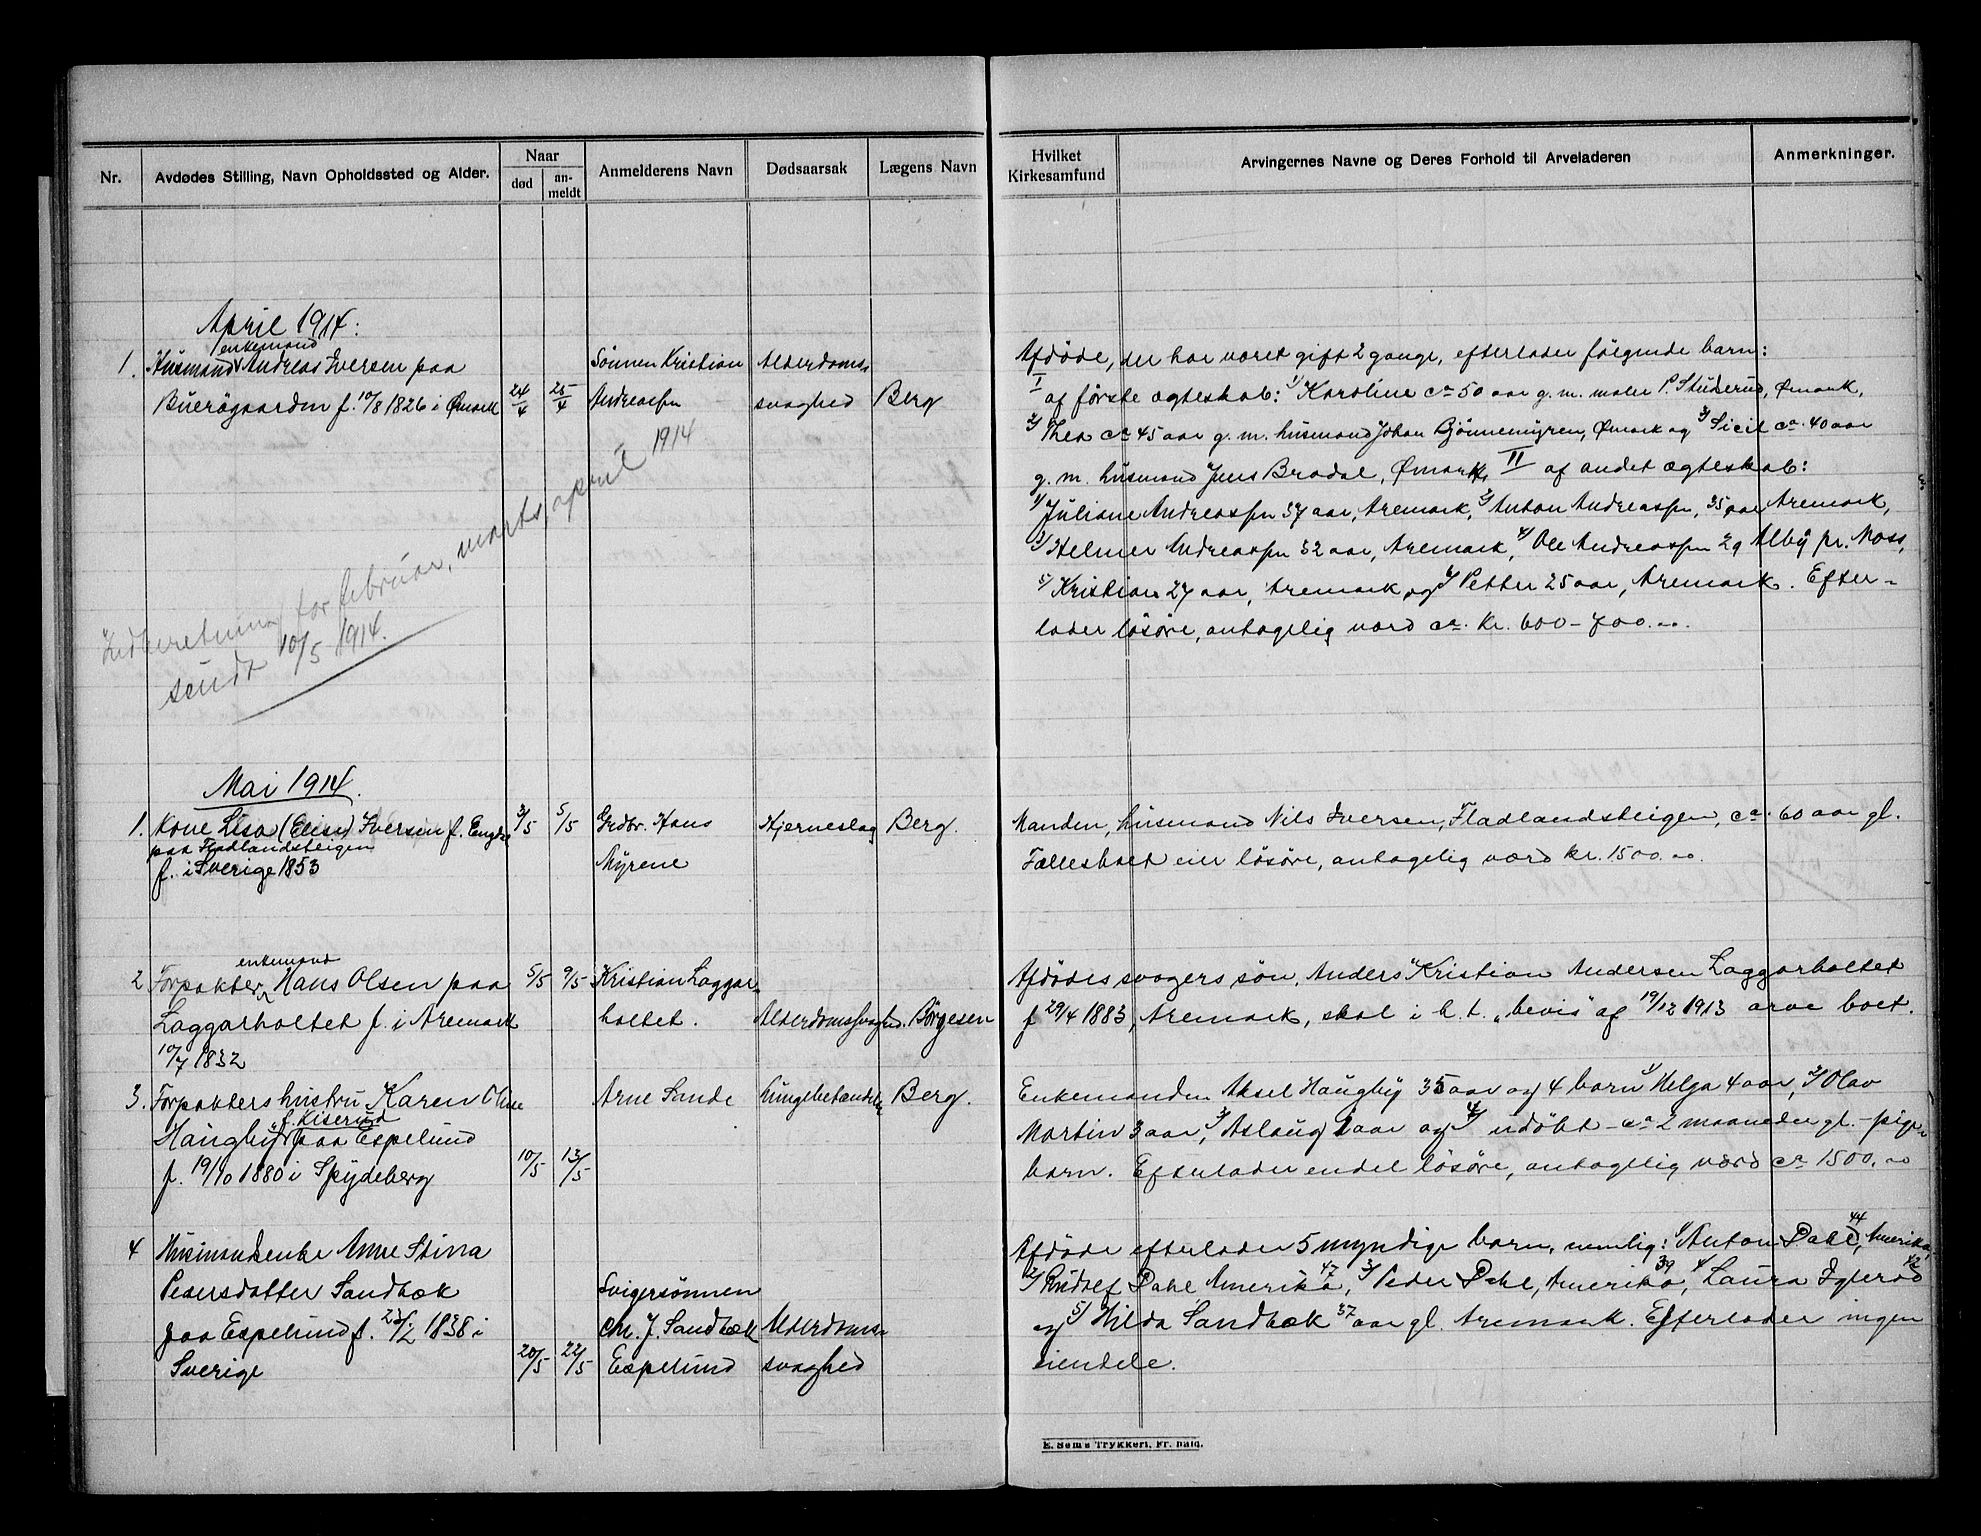 Nr.
Avdødes Stilling, Navn Opholdssted og Alder.
Naar
død
an-
meldt
Anmelderens Navn
Dødsaarsak
Lægens Navn
Hvilket
Kirkesamfund
Arvingernes Navne og Deres Forhold til Arveladeren
Anmerkninger.
April 1914:
enkemand
1. Husmand Andreas Iversen paa
Buerøgaarden f. 10/8 1826 i Ømark
24/4 25/4
Sønnen Kristian
Andreassen
Alderdoms-
svaghed
Berg
Afdøde, der har været gift 2 gange, efterlader følgende barn:
I
af første ægteskab: 1/ Karoline ca 50 aar g. m. maler P. Studerud, Ømark,
2/ Thea ca 45 aar g. m. husmand Johan Bjønnemyren, Ømark og 3/ Sicil ca. 40 aar
g. m. husmand Jens Bradal, Ømark, II af andet ægteskab:
1/ Juliane Andreassen 37 aar, Aremark, 2/ Anton Andreassen, 35 aar Aremark,
3/ Helmer Andreassen 32 aar, Aremark, 4/ Ole Andreassen 29 Alby pr. Moss,
5/ Kristian 27 aar, Aremark og 6/ Petter 25 aar, Aremark. Efter-
lader løsøre, antagelig værd ca. kr. 600-700.00.
Indberetning for februar, marts, april 1914
sendt 10/5 1914.
Mai 1914.
1. Kone Lisa (Elise) Iversen f. Engdal
paa Fladlandsteigen
f. i Sverige 1853
3/5 5/5
Grdbr. Hans
Myrene
Hjerneslag
Berg.
Manden, husmand Nils Iversen, Fladlandsteigen, ca. 60 aar gl.
Fællesboet eier løsøre, antagelig værd kr. 1500.00.
enkemand
2 Forpakter, Hans Olsen paa
Laggarholtet f. i Aremark
10/7 1832
5/5 9/5
Kristian Laggar-
holtet.
Alderdomssvaghed.
Børgesen
Afdødes svagers søn, Anders Kristian Andersen Laggarholtet
f 29/4 1883, Aremark, skal i h. t. "bevis" af 19/12 1913 arve boet.
3. Forpakters hustru Karen Oline
f. Kiserud
Haugby paa Espelund
f. 19/10 1880 i Spydeberg
10/5 13/5
Arne Sande
Lungebetændelse
Berg.
Enkemanden Aksel Haugby 35 aar og 4 barn 1/ Helga 4 aar, 2/ Olav
Martin 3 aar, 3/ Aslaug 2 aar og 4/ udøbt - ca 2 maaneder gl. - pige-
barn. Efterlader endel løsøre, antagelig værd ca 1500.00
4 Husmandsenke Anne Stina
Pedersdatter Sandbæk
paa Espelund f. /2 1838 i
Sverige
20/5 22/5
Svigersønnen
Chr. J. Sandbæk
Espelund
Alderdoms-
svaghed
Afdøde efterlader 5 myndige barn, nemlig: 1/ Anton Dahl 44, Amerika,
2/ Rudolf Dahl, Amerika 47, 3/ Peder Dahl, Amerika 39, 4 Laura Iglerød 42
og 5/ Hilda Sandbæk 37 aar gl. Aremark. Efterlader ingen
eiendele.
E. Sems Trykkeri, Fr. hald.